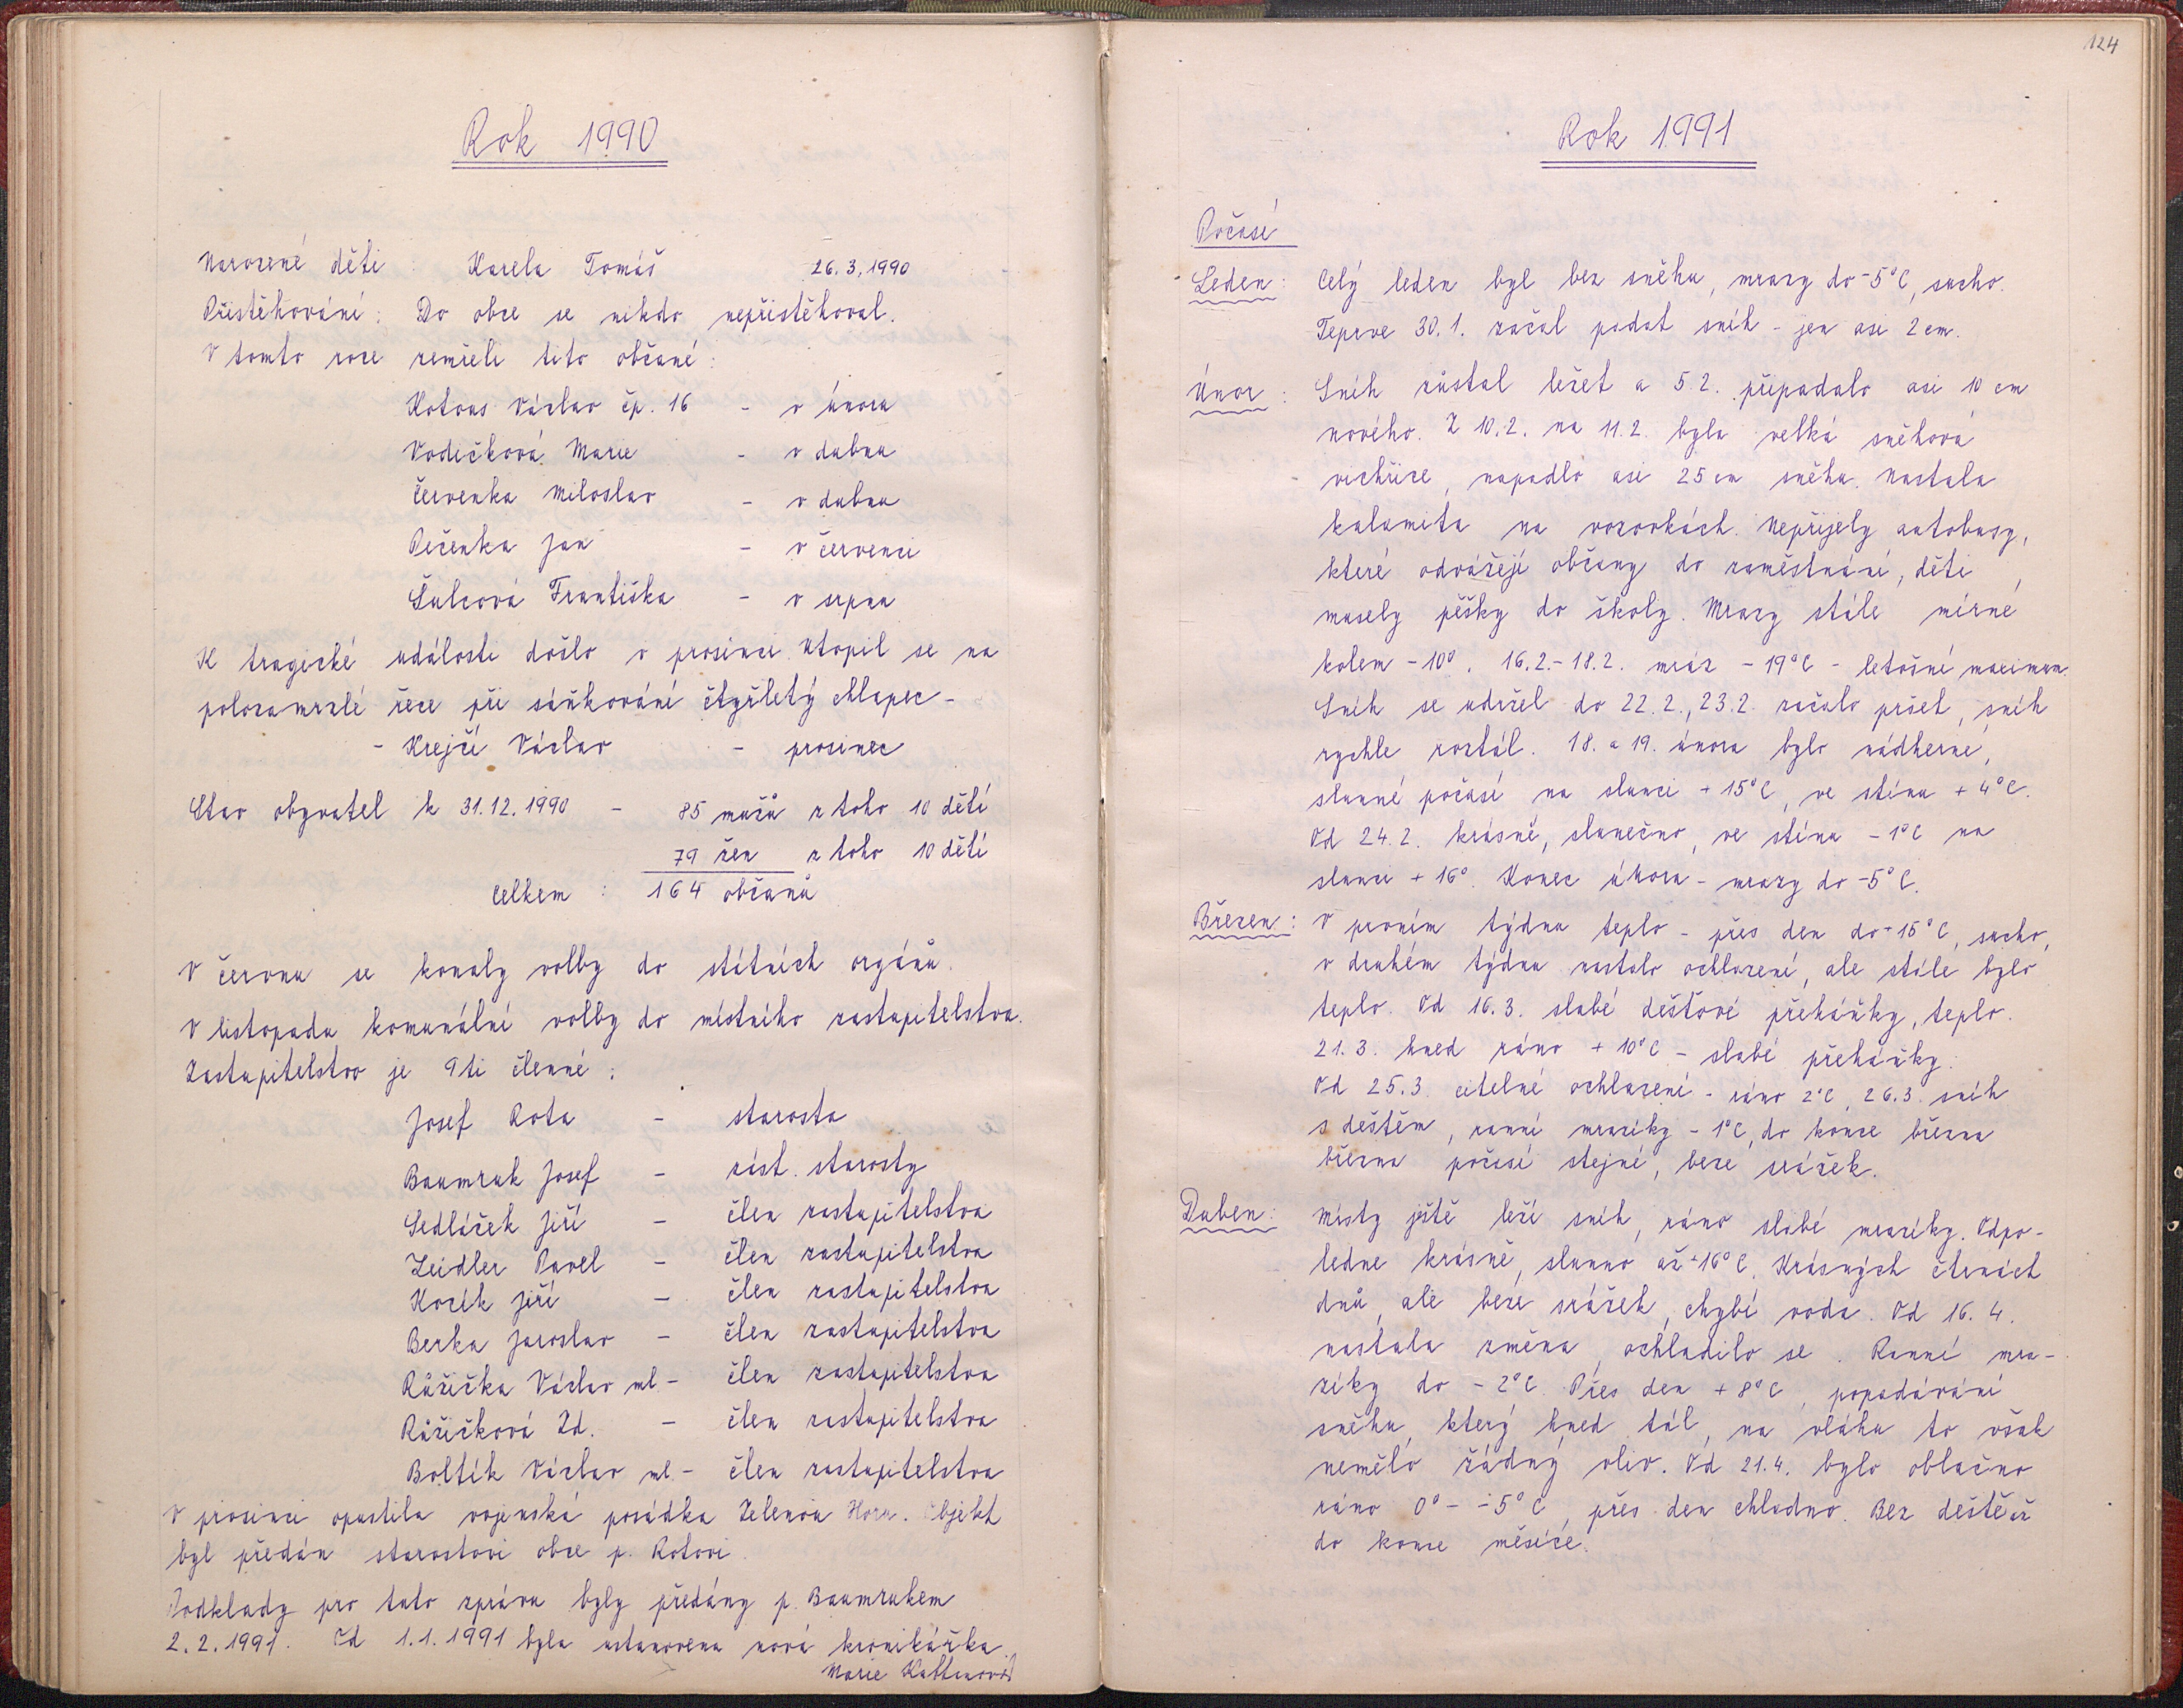 Rok 1990
Narozené děti : Karela Tomáš 26.3.1990
Přistěhování : Do obce se nikdo nepřistěhoval.
V tomto roce zemřeli tito občané :
Kotous Václav čp. 16 - v únoru
Vodičková Marie - v dubnu
Červenka Miloslav - v dubnu
Pečenka Jan - v červenci
Šulcová Františka - v srpnu
K tragické události došlo v prosinci. Utopil se na
polozamrzlé řece při sáňkování čtyřletý chlapec -
- Krejčí Václav - prosinec
Stav obyvatel k 31.12.1990 - 85 mužů z toho 10 dětí
79 žen z toho 10 dětí
Celkem : 164 občanů
V červnu se konaly volby do státních orgánů.
V listopadu komunální volby do místního zastupitelstva.
Zastupitelstvo je 9ti členné :
Josef Rota - starosta
Baumruk Josef - zást. starosty
Sedláček Jiří - člen zastupitelstva
Zeidler Pavel - člen zastupitelstva
Kozík Jiří - člen zastupitelstva
Berka Jaroslav - člen zastupitelstva
Růžička Václav ml. - člen zastupitelstva
Růžičková Zd. - člen zastupitelstva
Boltík Václav ml. - člen zastupitelstva
V prosinci opustila vojenská posádka Zelenou Horu. Objekt
byl předán starostovi obce p. Rotovi.
Podklady pro tuto zprávu byly předány p. Baumrukem
2.2.1991. Od 1.1.1991 byla ustanovena nová kronikářka.
Marie
124
Rok 1991
Počasí
Leden : Celý leden byl bez sněhu, mrazy do -5°C, sucho.
Teprve 30.1. začal padat sníh - jen asi 2 cm.
Únor : Sníh zůstal ležet a 5.2. připadalo asi 10 cm
nového. Z 10.2. na 11.2. byla velká sněhová
vichřice, napadlo asi 25 cm sněhu. Nastala
kalamita na vozovkách. Nepřijely autobusy,
které odvážejí občany do zaměstnání, děti
musely pěšky do školy. Mrazy stále mírné
kolem -10°. 16.2.-18.2. mráz -19°C - letošní maximum.
Sníh se udržel do 22.2., 23.2. začalo pršet, sníh
rychle roztál. 18. a 19. února bylo nádherné,
slunné počasí na slunci +15°C, ve stínu +4°C.
Od 24.2. krásně, slunečno, ve stínu -1°C na
slunci +16°. Konec února - mrazy do -5°C.
Březen : V prvním týdnu teplo - přes den do +15°C, sucho,
v druhém týdnu nastalo ochlazení, ale stále bylo
teplo. Od 16.3. slabé dešťové přeháňky, teplo.
21.3. hned ráno +10°C - slabé přeháňky.
Od 25.3. citelné ochlazení - ráno 2°C, 26.3. sníh
s deštěm, ranní mrazíky -1°C, do konce března
března počasí stejné, beze srážek.
Duben : Místy ještě leží sníh, ráno slabé mrazíky. Odpo-
ledne krásně, slunno až +16°C. Krásných čtrnáct
dnů, ale beze srážek, chybí voda. Od 16.4.
nastala změna, ochladilo se. Ranní mra-
zíky do -2°C. Přes den +8°C, popadávání
sněhu, který hned tál, na vláhu to však
nemělo žádný vliv. Od 21.4. bylo oblačno
ráno 0° - -5°C, přes den chladno. Bez deště až
do konce měsíce.